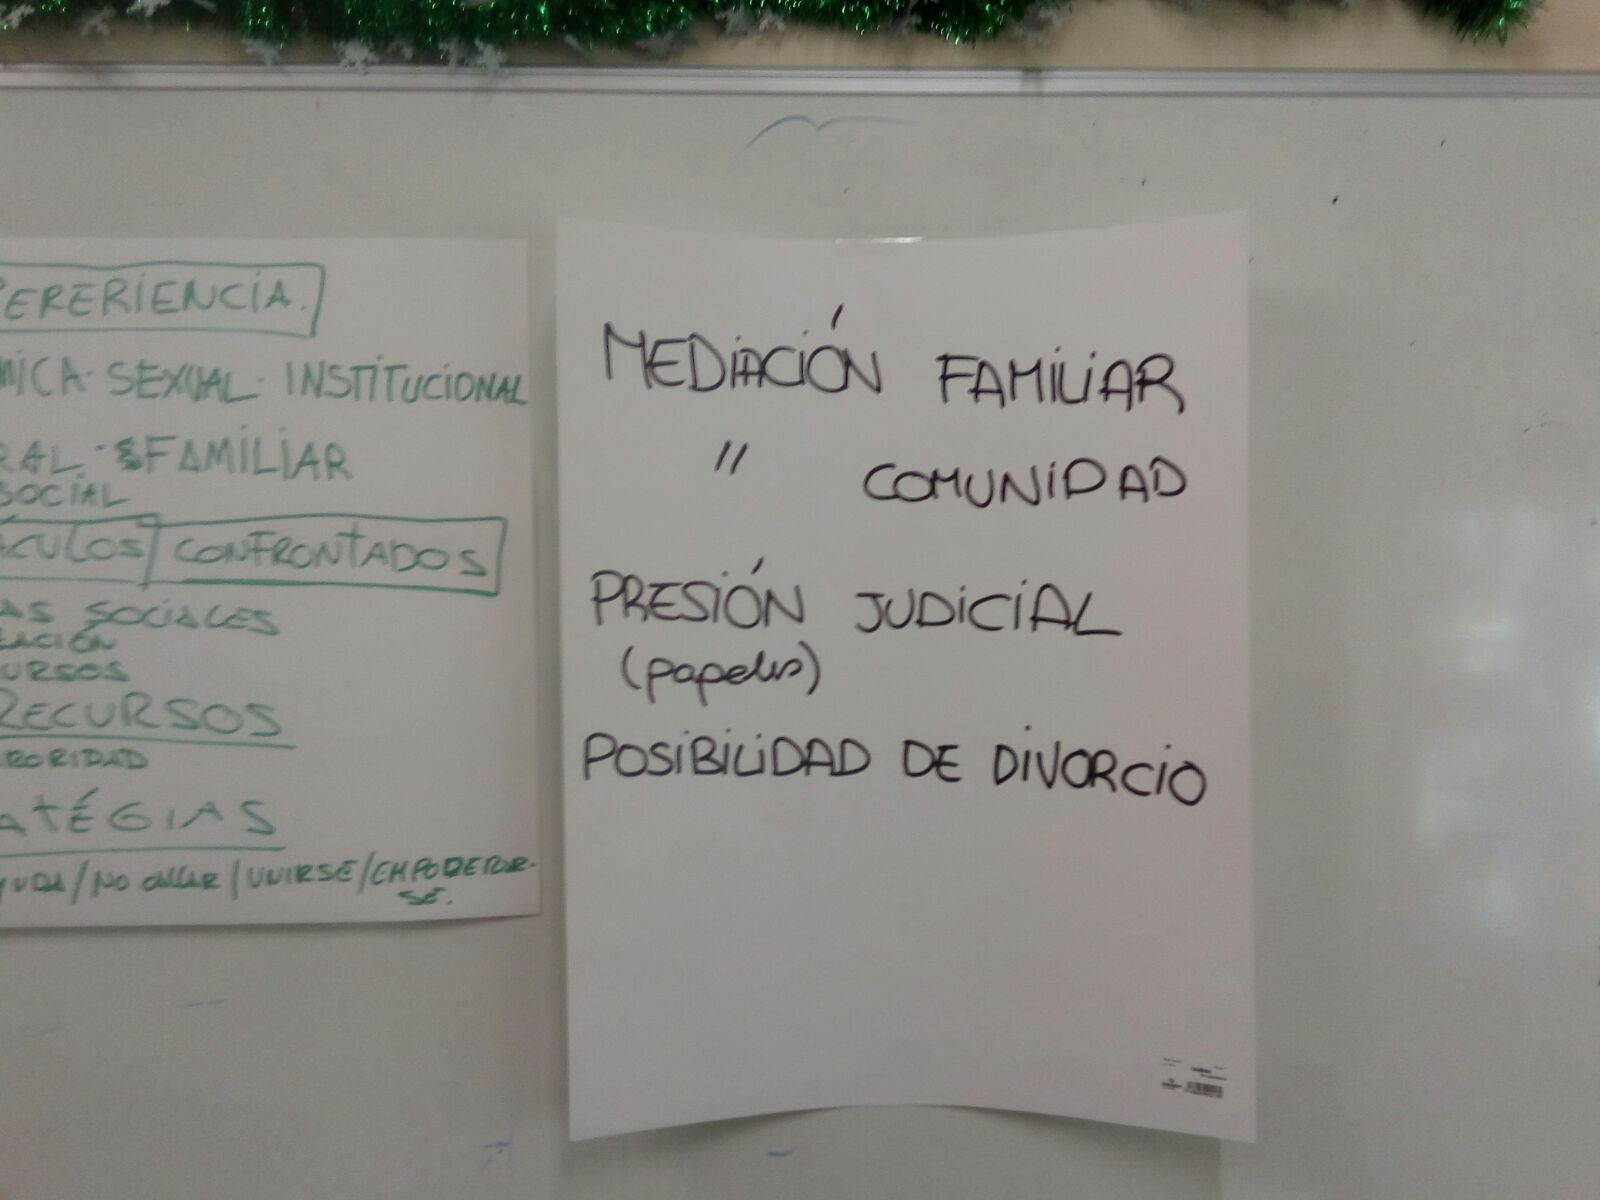 ERERIENCIA.
MICA. SEXUAL. INSTITUCIONAL
RAL. FAMILIAR
SOCIAL
ÁCULOS CONFRONTADOS
AS SOCIALES
ACIÓN
URSOS
RECURSOS
RORIDAD
ATÉGIAS
YUDA/NO CALLAR/UNIRSE/EMPODERAR-
SE.
MEDIACIÓN FAMILIAR
" COMUNIDAD
PRESIÓN JUDICIAL
(papeles)
POSIBILIDAD DE DIVORCIO